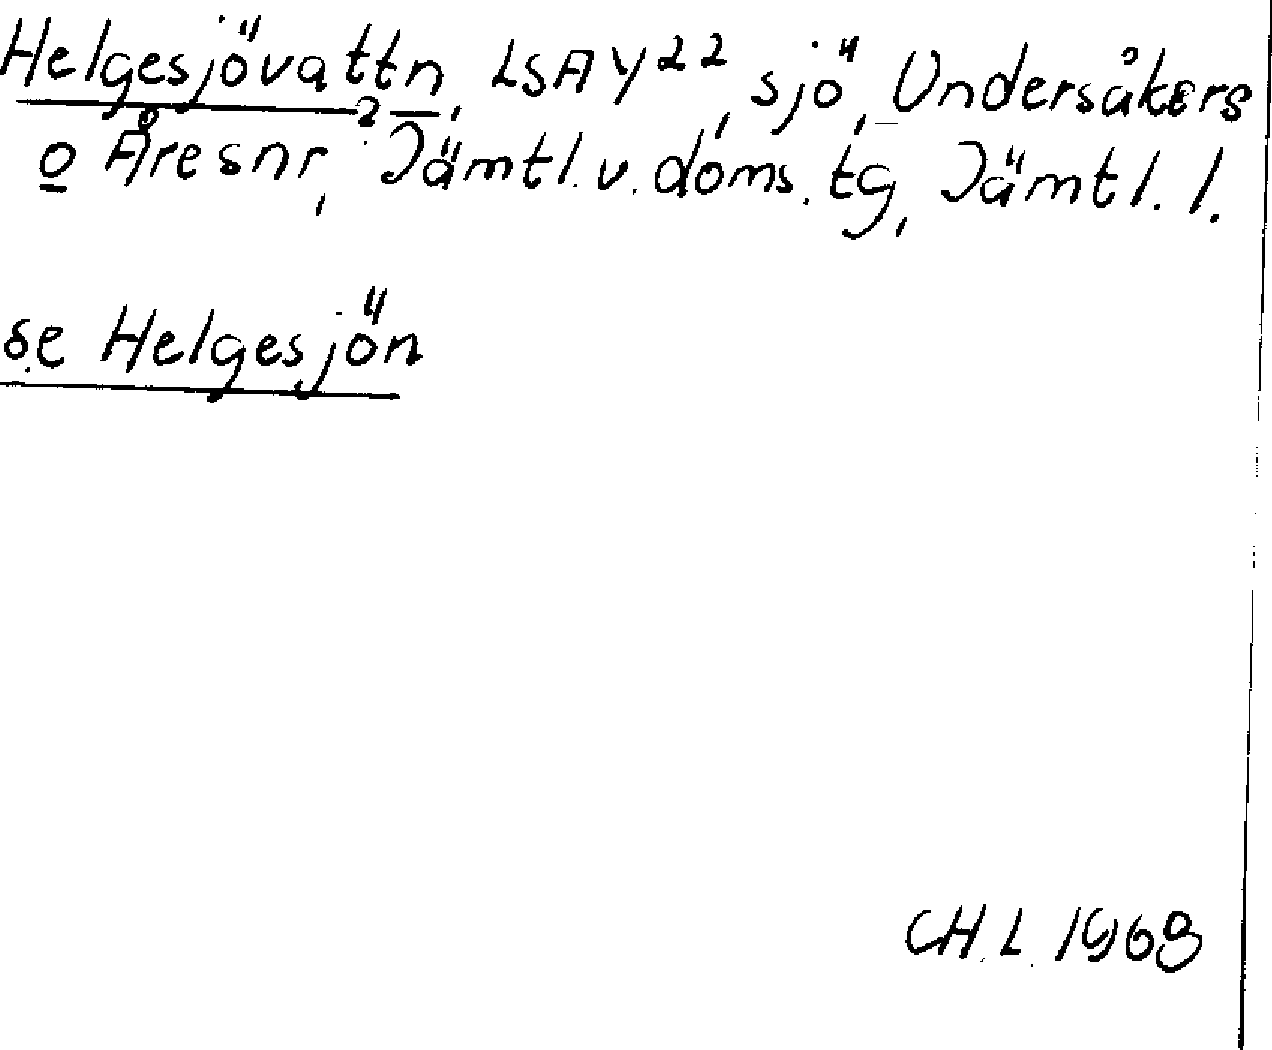 Helgesjövattn, LSA Y22, sjö, Undersåkers
o Åresnr, Jämtl. v. doms. tg, Jämtl. l.
se Helgesjön
CH. L. 1968